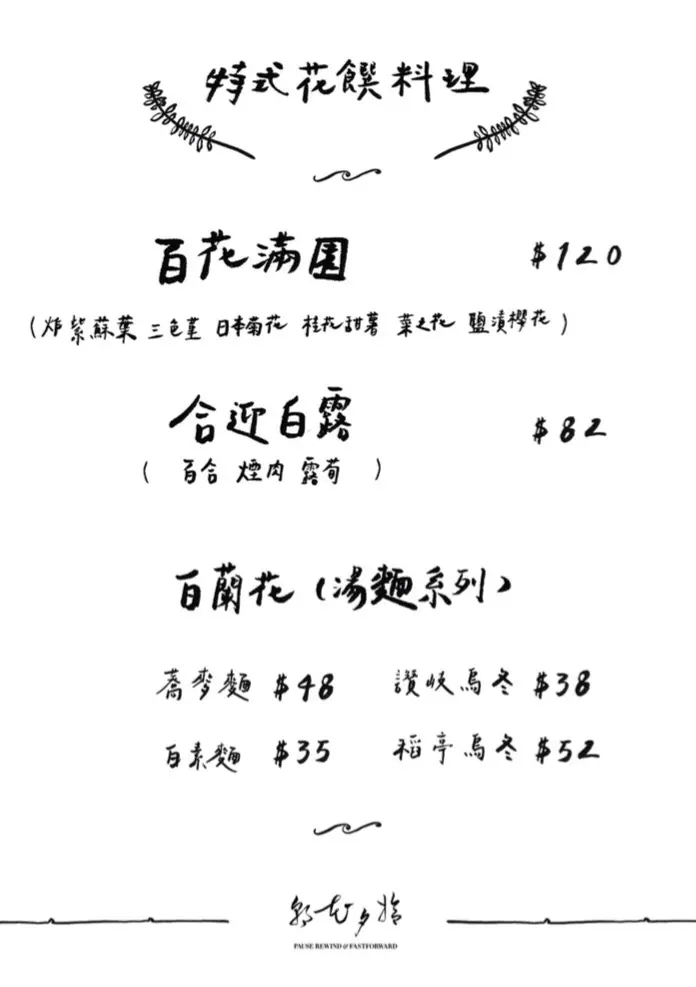 特式花饌料理
百花滿園 $120
(炸紫蘇葉 三色堇 日本南花 桂花甜薯 菜之花 鹽漬櫻花)
合迎白露 $82
( 百合 煙肉 露荀 )
白蘭花(湯麵系列)
蕎麥麵 $48 讚岐烏冬 $38
白素麵 $35 稻亭烏冬 $52
朝花夕拾
PAUSE REWIND & FASTFORWARD